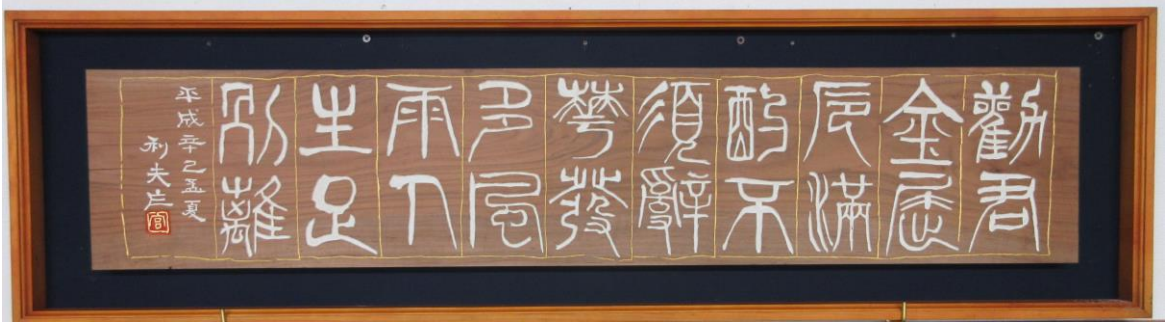 勸君
金屈
卮滿
酌不
須辭
華發
多風
雨人
生足
別離
平成辛巳孟夏
利夫
宮